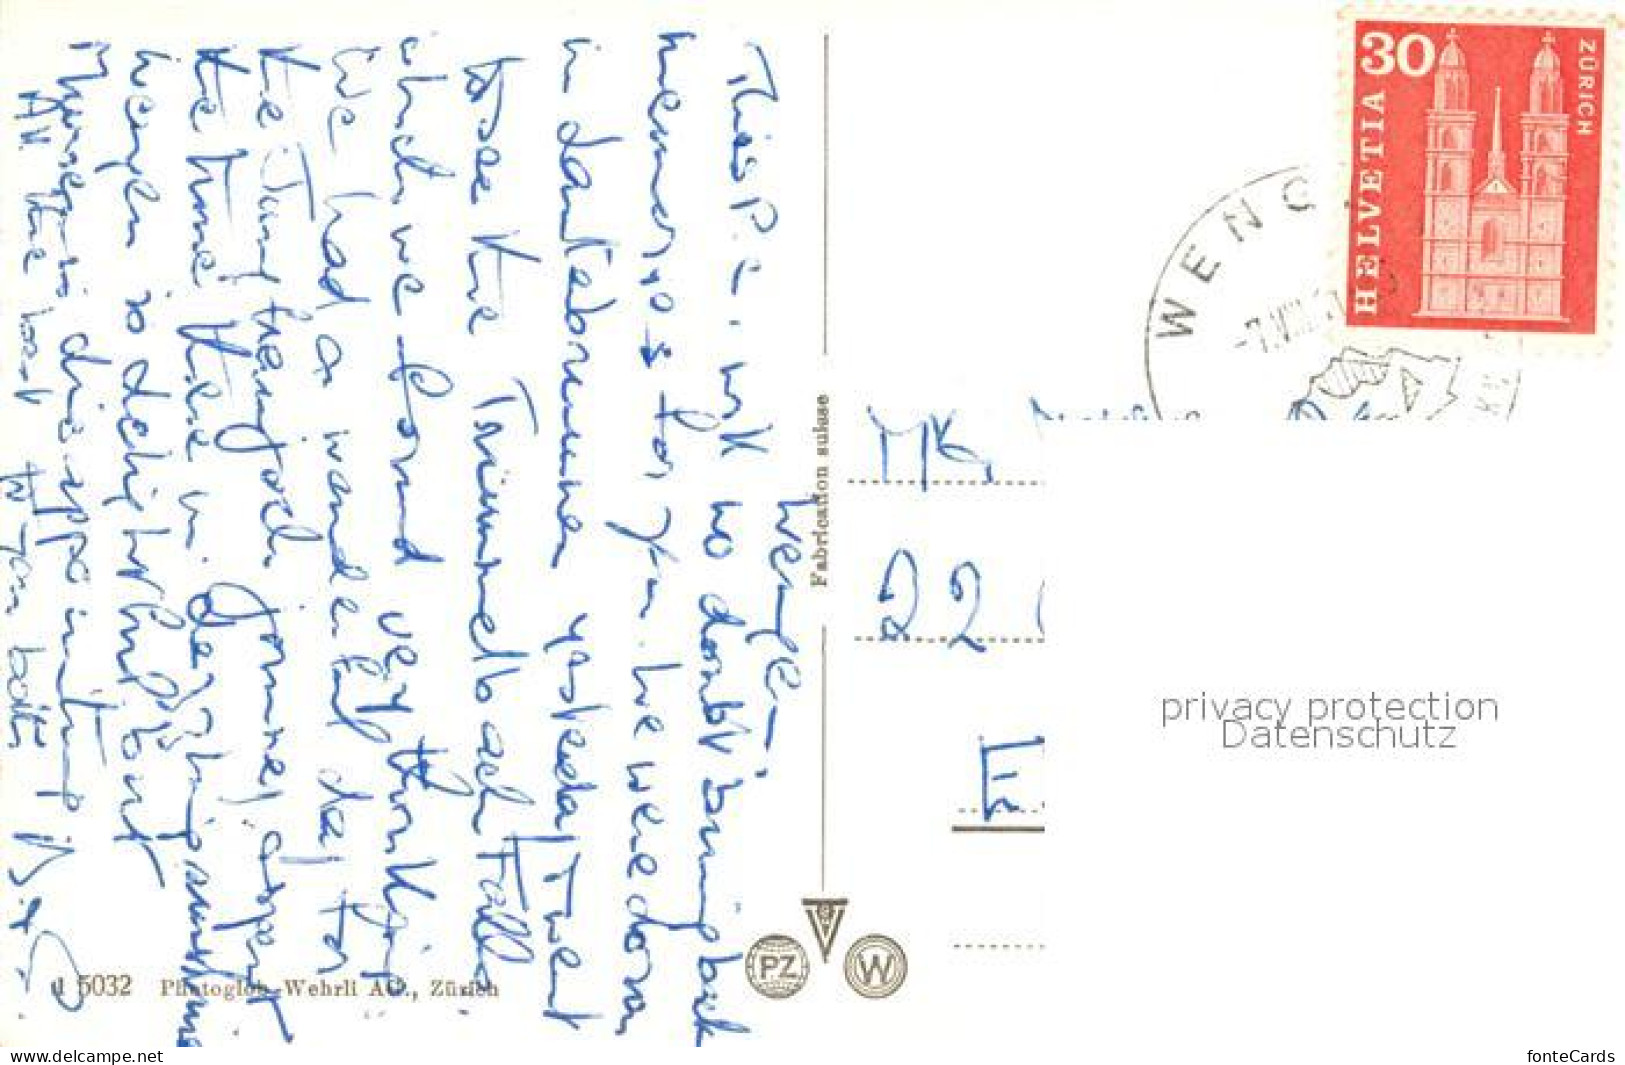 Wengen—
This P.C. will no doubt bring back
memories for you. We were down
in Lauterbrunnen yesterday & went
to see the Trümmelbach Falls
which we found very
We had a wonderful day for
the Jungfraujoch Journey & spent
the time there in
Wengen is delightful but
Mürren is disappointing
All the best to you both
1 5032 Photoglob-Wehrli AG., Zürich
Fabrication suisse
PZ
W
HELVETIA
30
ZÜRICH
WENG
-7.VIII.
Mr.
22
E
privacy protection
Datenschutz
www.delcampe.net
fonteCards